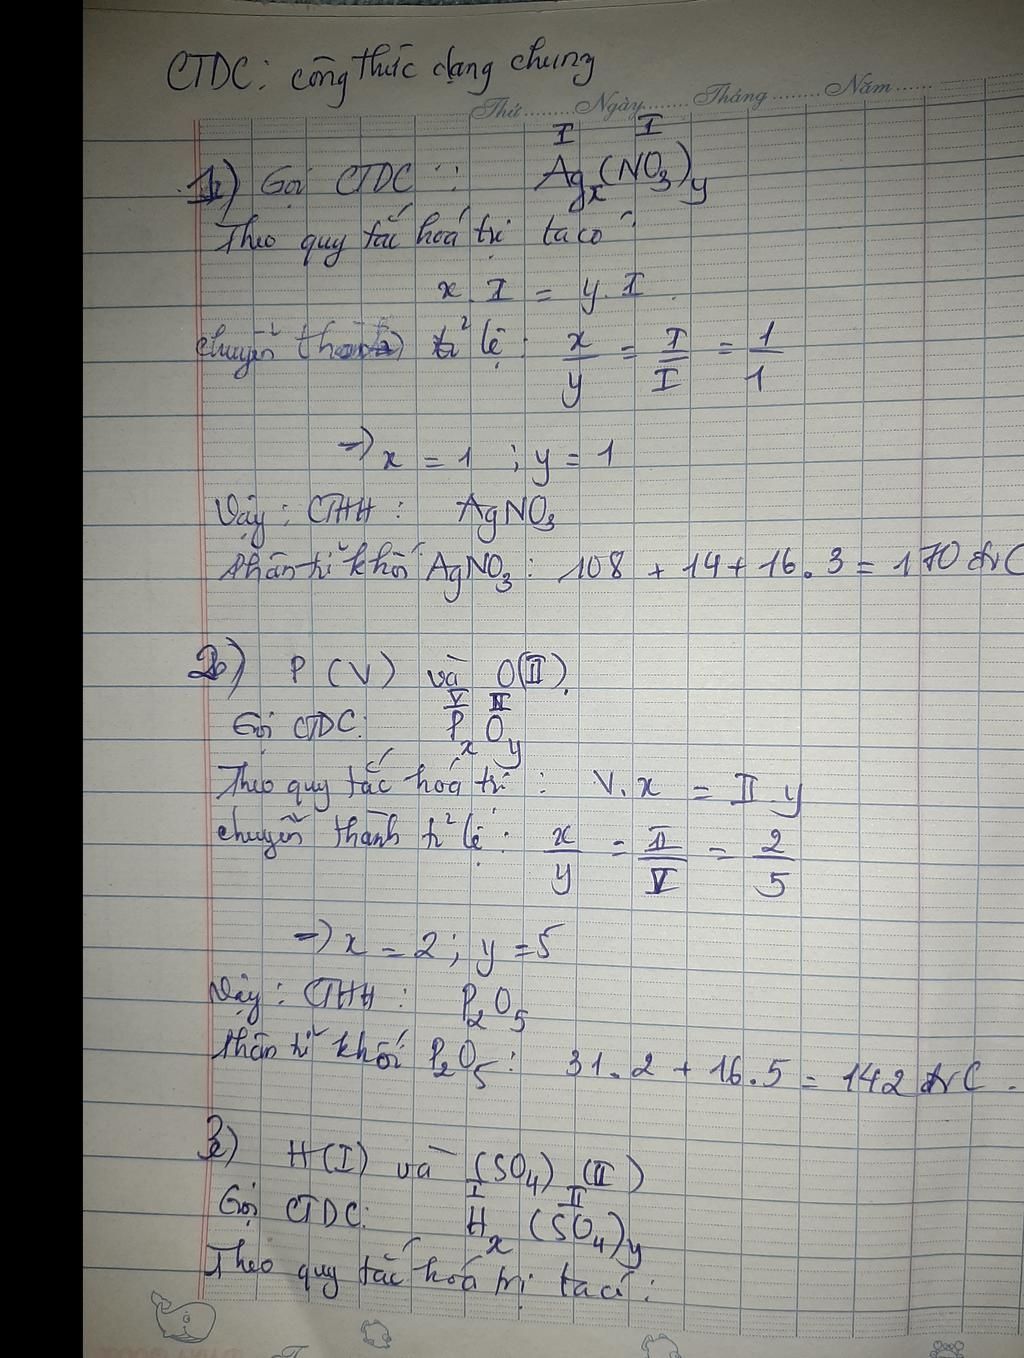 CTDC: công thức dạng chung
Thứ ........ Ngày ........ Tháng ........ Năm ......
I I
1) Gọi CTDC : Agx(NO3)y
Theo quy tắc hoá trị ta có :
x . I = y . I
chuyển thành tỉ lệ : x/y = I/I = 1/1
=> x = 1 ; y = 1
Vậy : CTHH : AgNO3
Phân tử khối AgNO3 : 108 + 14 + 16 . 3 = 170 đvC
2) P (V) và O(II).
V II
Gọi CTDC: PxOy
Theo quy tắc hoá trị : V. x = II y
chuyển thành tỉ lệ : x/y = II/V = 2/5
=> x = 2 ; y = 5
Vậy : CTHH : P2O5
Phân tử khối P2O5 : 31 . 2 + 16 . 5 = 142 đvC .
3) H(I) và (SO4) (II)
I II
Gọi CTDC: Hx (SO4)y
Theo quy tắc hoá trị ta có :